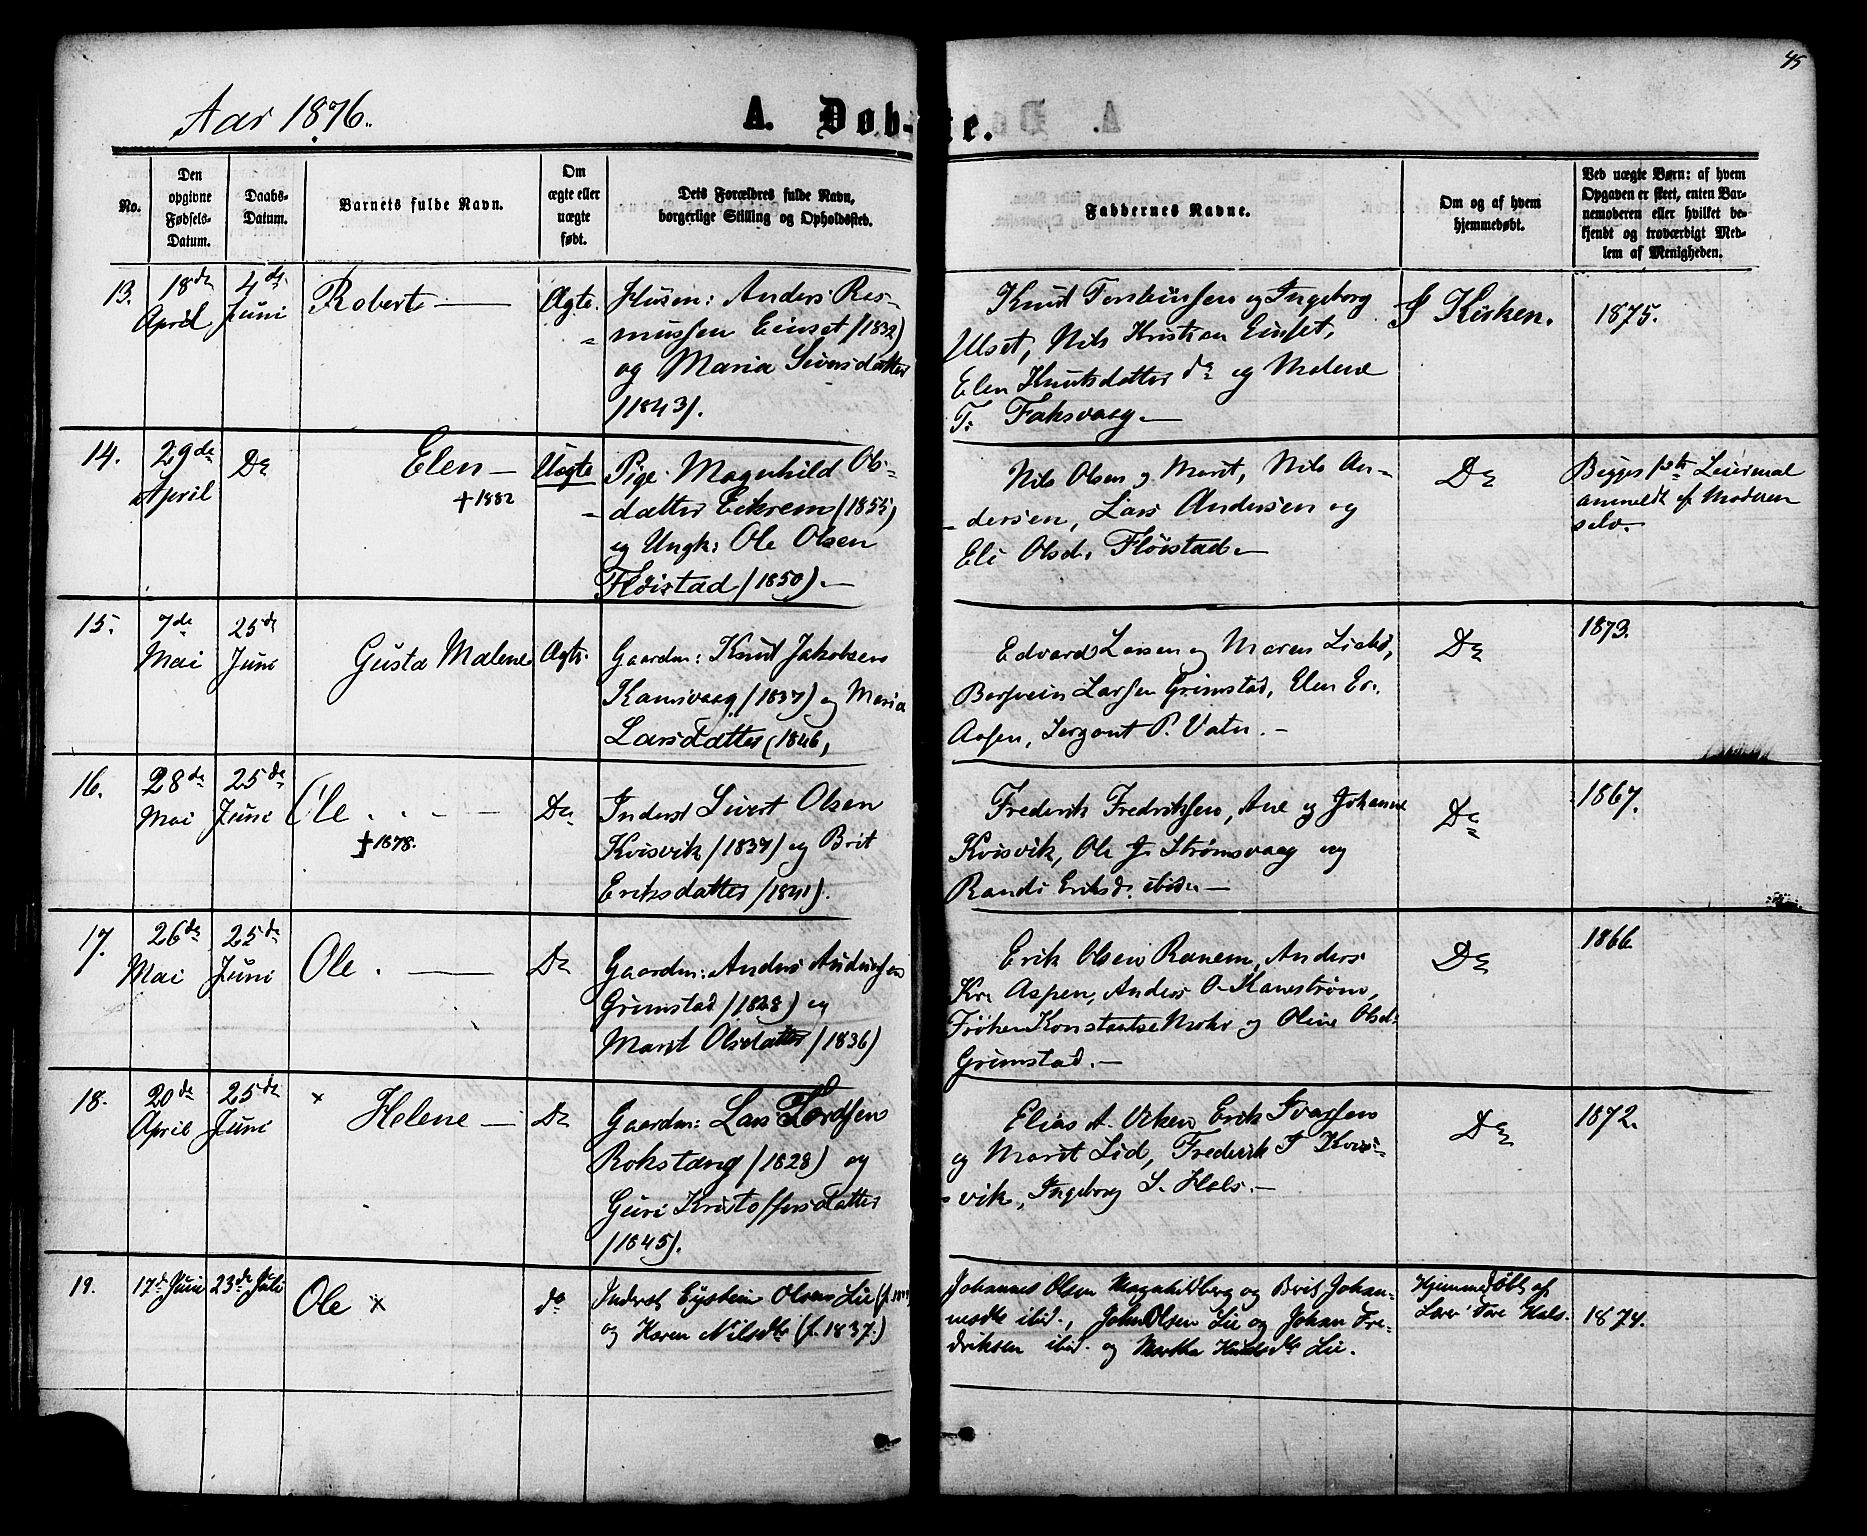 45
Aar 1876.
A. Døb-te.
No.
Den opgivne Fødsels-Datum.
Daabs-Datum.
Barnets fulde Navn.
Om ægte eller uægte født.
Dets Forældres fulde Navn, borgerlige Stilling og Opholdssted.
Faddernes Navne.
Om og af hvem hjemmedøbt.
Ved uægte Børn: af hvem Opgaven er skeet, enten Barnemoderen eller hvilket bekjendt og troværdigt Medlem af Menigheden.
13.
18de April
4de Juni
Robert
Ægte.
Husm: Anders Ras-
mussen Einset (1832)
og Maria Siversdatter
(1843).
Knud Torsteinsen og Ingeborg
Ulset, Nils Kristian Einset,
Elen Knutsdatter do og Malene
T. Faksvaag.
I Kirken.
1875.
14.
29de April
Do
Elen
† 1882
Uægte
Pige Magnhild Ols-
datter Eekrem (1855)
og Ungk: Ole Olsen
Fløistad (1850).
Nils Olsen og Marit, Nils An-
dersen, Lars Andersen og
Eli Olsd. Fløistad.
Do
Begges 1ste Leiermal
anmeldt af Moderen
selv.
15.
7de Mai
25de Juni
Gusta Malene
Ægte.
Gaardm: Knud Jakobsen
Kanisvaag (1837) og Maria
Larsdatter (1846)
Edvard Larsen og Maren
Bersvein Larsen Grimstad, Elen Er.
Aasen, Sergant P. Vatn.
Do
1873.
16.
28de Mai
25de Juni
Ole
† 1878.
Do
Inderst Sivert Olsen
Kvisvik (1837) og Brit
Eriksdatter (1841).
Frederik Fredriksen, Ane og Johanne
Kvisvik, Ole J. Strømsvaag og
Randi Eriksd. ibid.
Do
1867.
17.
26de Mai
25de Juni
Ole
Do
Gaardm: Anders Andersen
Grimstad (1828) og
Marit Olsdatter (1836)
Erik Olsen Ranem, Anders
Kr. Aspen, Anders O. Kanestrøm,
Frøken Konstantse Mohr og Oline Olsd.
Grimstad.
Do
1866.
18.
20de April
25de Juni
× Helene
Do
Gaardm: Lars Tordsen
Rokstang (1828) og
Guri Kristoffersdatter
(1845).
Elias A. Erik Ivarsen
og Marit Lid, Frederik F Kvis-
vik, Ingeborg S. Hals.
Do
1872.
19.
17de Juni
23de Juli
Ole ×
do
Inderst Eystein Olsen Lie
og Karen Nilsdtr (f. 1837.)
Johannes Olsen Magnhildberg og Brit Johan-
nesdtr ibid., John Olsen Lie og Johan Fre-
driksen ibid. og Martha Lie.
Hjemmedøbt af
Lærer Tore Hals.
1874.